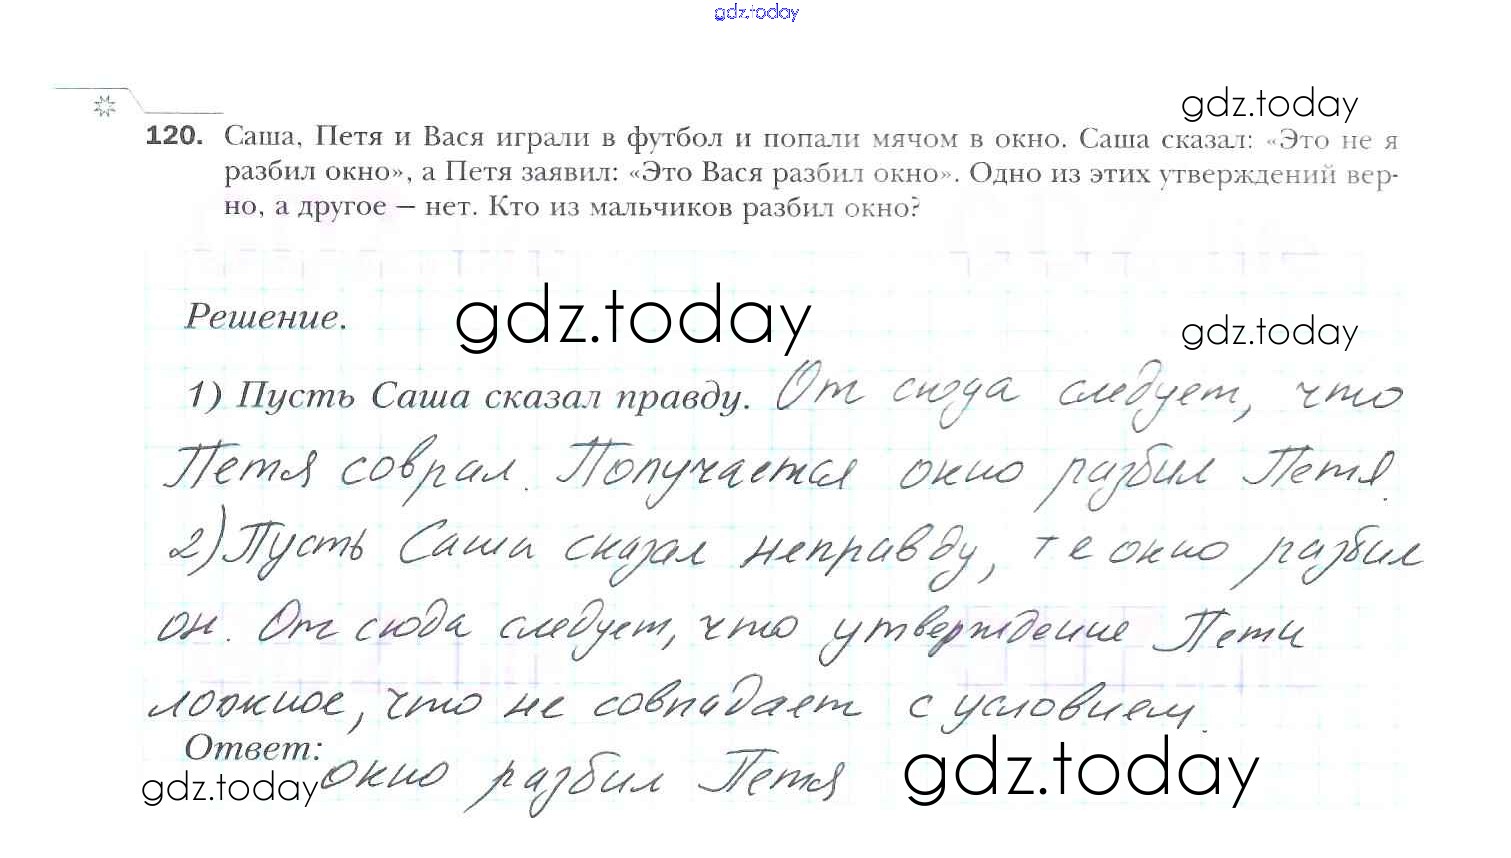 gdz.today
gdz.today
120. Саша, Петя и Вася играли в футбол и попали мячом в окно. Саша сказал: «Это не я
разбил окно», а Петя заявил: «Это Вася разбил окно». Одно из этих утверждений вер-
но, а другое — нет. Кто из мальчиков разбил окно?
Решение. gdz.today gdz.today
1) Пусть Саша сказал правду. От сюда следует, что
Петя соврал. Получается окно разбил Петя.
2) Пусть Саша сказал неправду, т е окно разбил
он. От сюда следует, что утверждение Пети
ложное, что не совпадает с условием.
Ответ: окно разбил Петя
gdz.today gdz.today